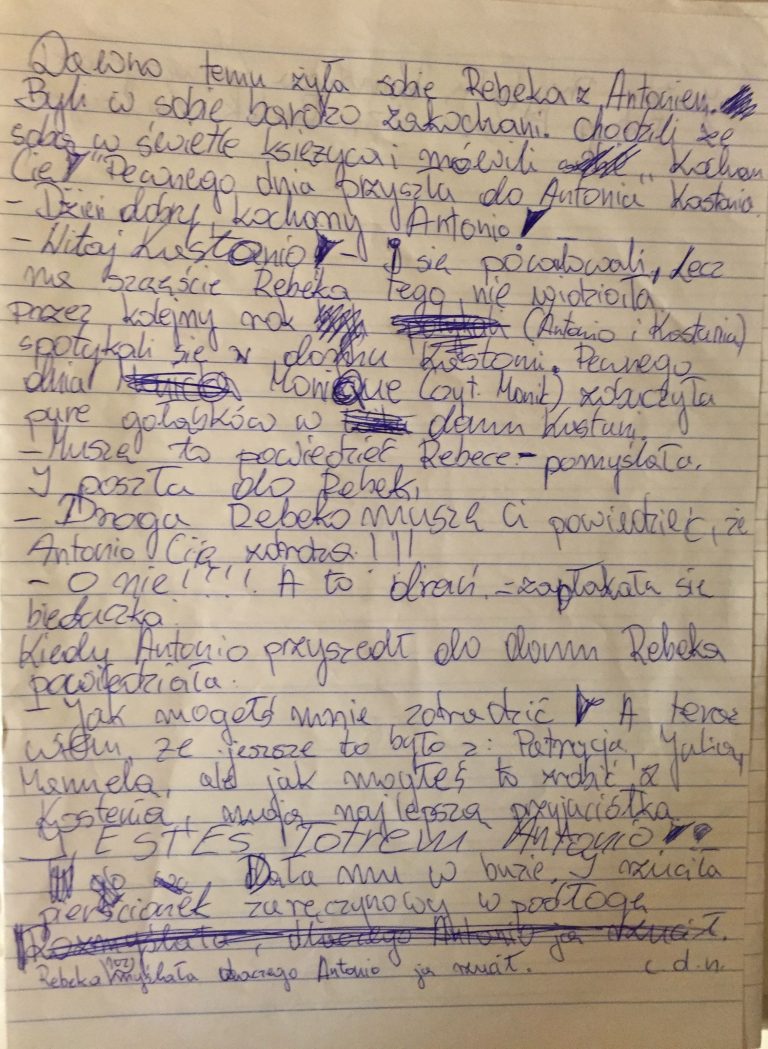 Dawno temu żyła sobie Rebeka z Antoniem.
Byli w sobie bardzo zakochani. Chodzili ze
sobą w świetle księżyca i mówili „Kocham
Cię!" Pewnego dnia przyszła do Antonia Kastania.
- Dzień dobry, kochany Antonio!
- Witaj Kastanio! - I się pocałowali, lecz
na szczęście Rebeka tego nie widziała
przez kolejny rok (Antonio i Kastania)
spotykali się w domku Kastani. Pewnego
dnia Monique (czyt. Monik) zobaczyła
parę gołąbków w domu Kastani.
- Muszę to powiedzieć Rebece - pomyślała.
I poszła do Rebeki
- Droga Rebeko muszę Ci powiedzieć, że
Antonio Cię zdradza!!!
- O nie!!!! A to drań. - zapłakała się
biedaczka.
Kiedy Antonio przyszedł do domu Rebeka
powiedziała.
- Jak mogłeś mnie zdradzić! A teraz
wiem, że jeszsze to było z: Patrycja, Julia,
Manuela, ale jak mogłeś to zrobić z
Kostenia, moją najlepszą przyjaciółką
JESTEŚ Totrem Antonio!
Dała mu w buzie. I rzuciła
pierścionek zaręczynowy w podłogę
Rozmyślała, dlaczego Antonio ją rzucił.
Rebeka rozmyślała dlaczego Antonio ją rzucił. c.d.n.